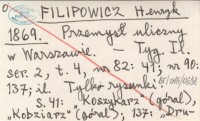 FILIPOWICZ Henryk
1869. Przemysł uliczny
w Warszawie. — Tyg. Il.
ser. 2, t. 4, nr 82: 41; nr 90:
137; il. Tylko rysunki.
S. 41: "Koszykarz" (góral),
"Kobziarz" (góral); 137: "Dru-